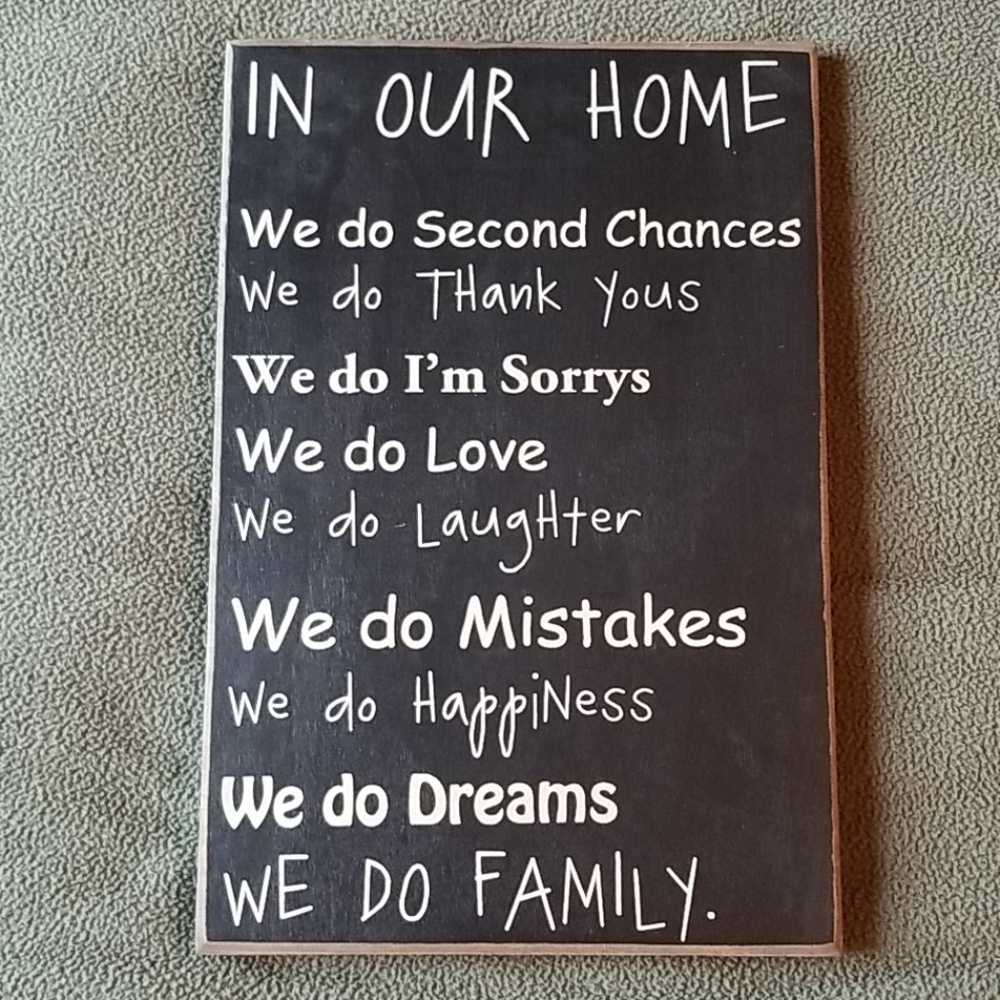 IN OUR HOME
We do Second Chances
We do THank Yous
We do I'm Sorrys
We do Love
We do LaugHter
We do Mistakes
We do HappiNess
We do Dreams
WE DO FAMILY.